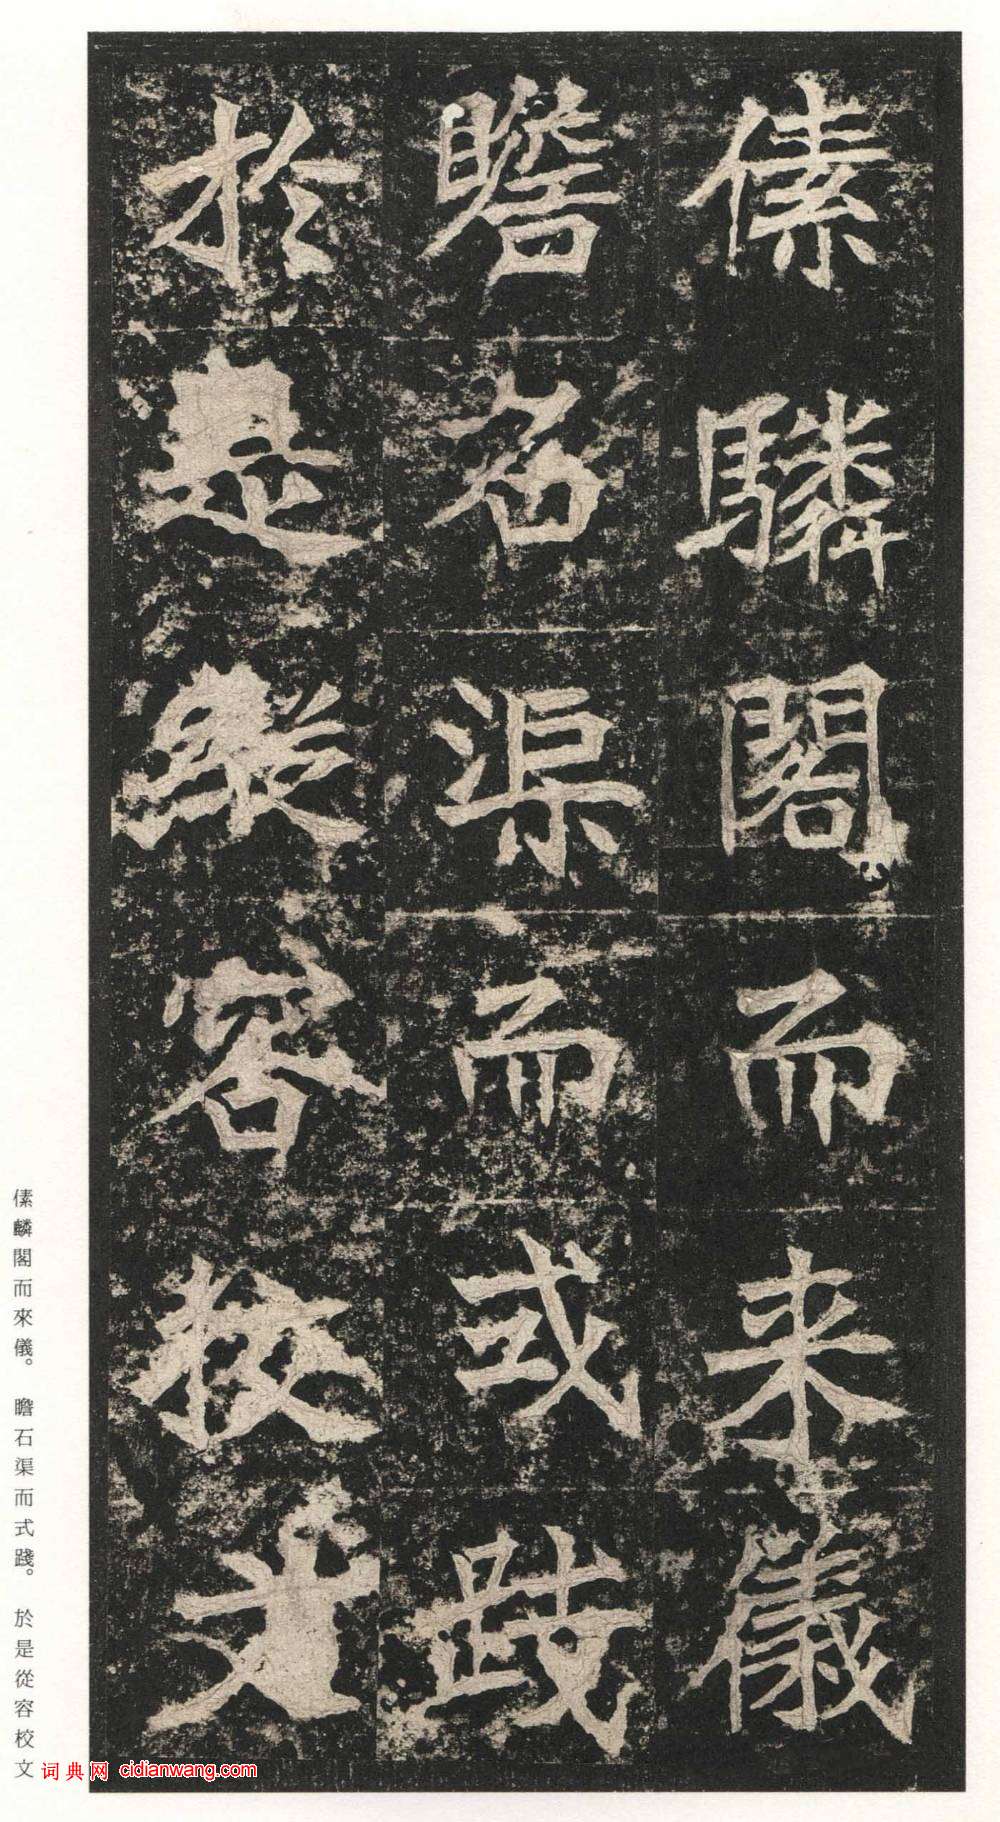 傃驎閣而来儀
瞻石渠而式踐
於是縱容校文
傃麟閣而來儀。瞻石渠而式踐。於是從容校文
词典网 cidianwang.com